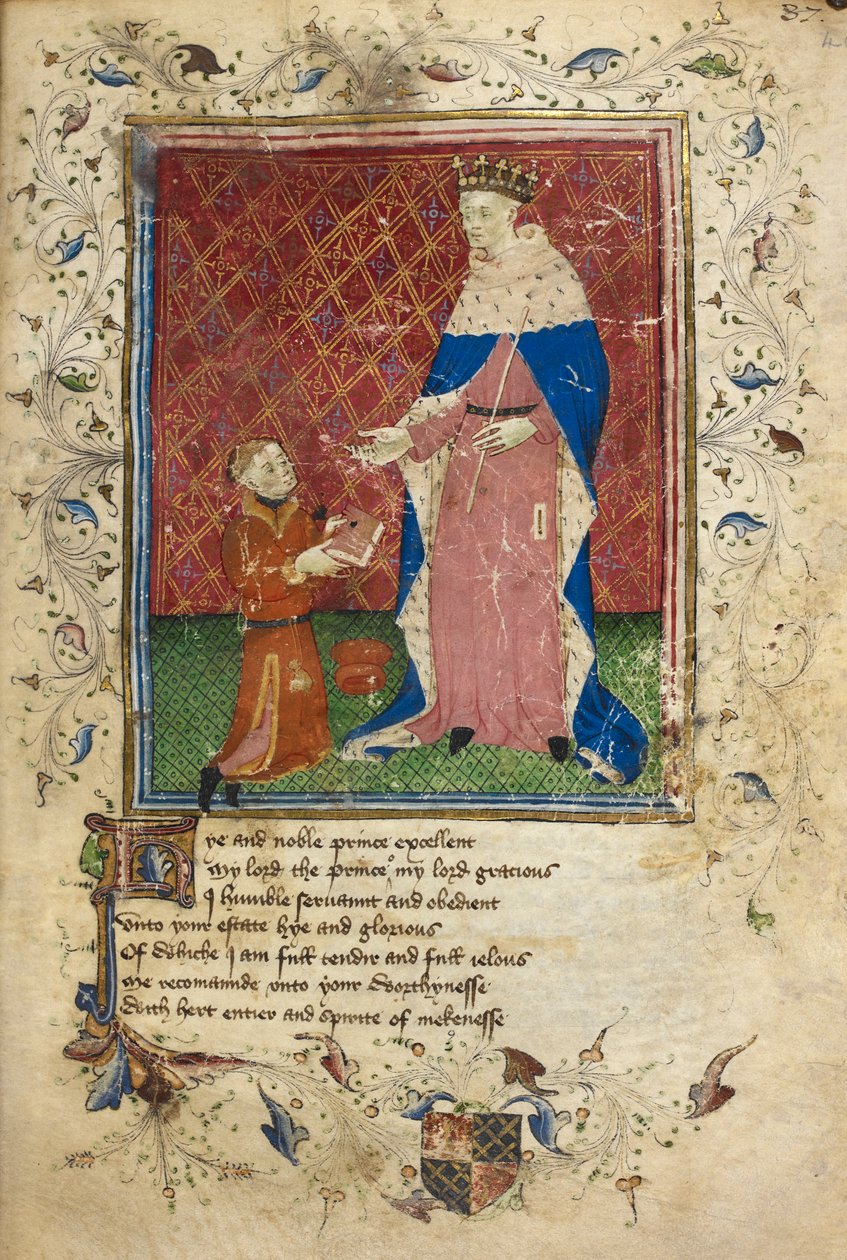 37.
Hye and noble prince excellent
My lord the prince o my lord gracious
I humble seruaunt and obedient
Unto your estate hye and glorious
Of whiche I am full tendir and full ielous
Me recomaunde vnto your worthynesse
With hert entier and spirite of mekenesse